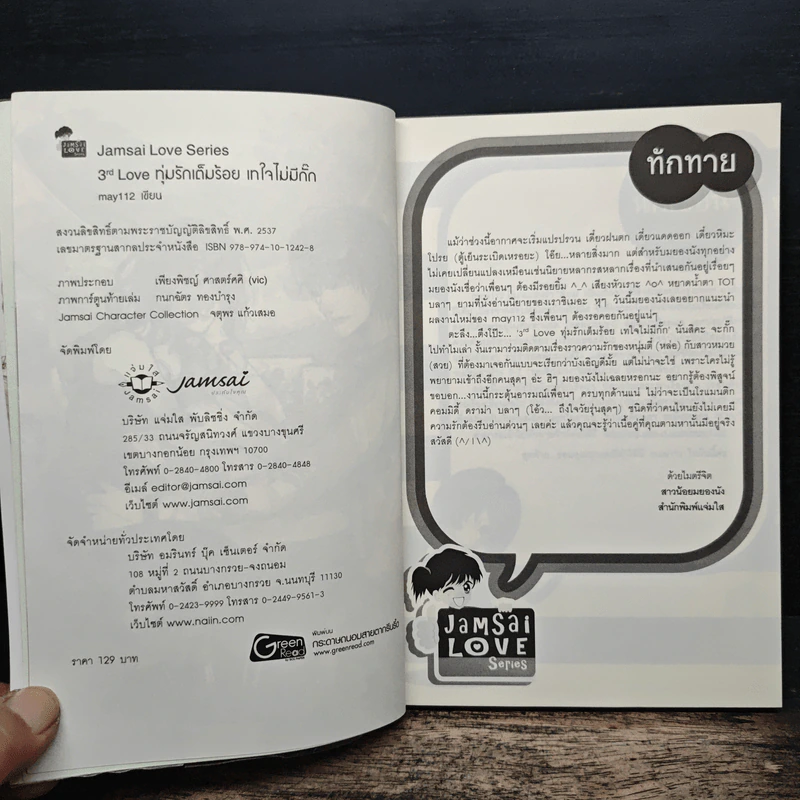 JAMSAI
LOVE
Series
Jamsai Love Series
3rd Love ทุ่มรักเต็มร้อย เทใจไม่มีกั๊ก
may112 เขียน
สงวนลิขสิทธิ์ตามพระราชบัญญัติลิขสิทธิ์ พ.ศ. 2537
เลขมาตรฐานสากลประจำหนังสือ ISBN 978-974-10-1242-8
ภาพประกอบ เพียงพิชญ์ ศาสตร์ศศิ (vic)
ภาพการ์ตูนท้ายเล่ม กนกฉัตร ทองบำรุง
Jamsai Character Collection จตุพร แก้วเสมอ
จัดพิมพ์โดย
แจ่มใส
Jamsai
Jamsai
บริษัท แจ่มใส พับลิชชิ่ง จำกัด
285/33 ถนนจรัญสนิทวงศ์ แขวงบางขุนศรี
เขตบางกอกน้อย กรุงเทพฯ 10700
โทรศัพท์ 0-2840-4800 โทรสาร 0-2840-4848
อีเมล์ editor@jamsai.com
เว็บไซต์ www.jamsai.com
จัดจำหน่ายทั่วประเทศโดย
บริษัท อมรินทร์ บุ๊ค เซ็นเตอร์ จำกัด
108 หมู่ที่ 2 ถนนบางกรวย-จงถนอม
ตำบลมหาสวัสดิ์ อำเภอบางกรวย จ.นนทบุรี 11130
โทรศัพท์ 0-2423-9999 โทรสาร 0-2449-9561-3
เว็บไซต์ www.naiin.com
ราคา 129 บาท
Green
Read
พิมพ์บน
กระดาษถนอมสายตากรีนรี้ด
www.greenread.com
ทักทาย
แม้ว่าช่วงนี้อากาศจะเริ่มแปรปรวน เดี๋ยวฝนตก เดี๋ยวแดดออก เดี๋ยวหิมะ
โปรย (ตู้เย็นระเบิดเหรอยะ) โอ๊ย...หลายสิ่งมาก แต่สำหรับมยองนังทุกอย่าง
ไม่เคยเปลี่ยนแปลงเหมือนเช่นนิยายหลากรสหลากเรื่องที่นำเสนอกันอยู่เรื่อยๆ
มยองนังเชื่อว่าเพื่อนๆ ต้องมีรอยยิ้ม ^_^ เสียงหัวเราะ ^o^ หยาดน้ำตา TOT
บลาๆ ยามที่นั่งอ่านนิยายของเราชิเมอะ หุๆ วันนี้มยองนังเลยอยากแนะนำ
ผลงานใหม่ของ may112 ซึ่งเพื่อนๆ ต้องรอคอยกันอยู่แน่ๆ
ตะลึง...ตึงโป๊ะ... ‘3rd Love ทุ่มรักเต็มร้อย เทใจไม่มีกั๊ก’ นั่นสิคะ จะกั๊ก
ไปทำไมเล่า งั้นเรามาร่วมติดตามเรื่องราวความรักของหนุ่มตี๋ (หล่อ) กับสาวหมวย
(สวย) ที่ต้องมาเจอกันแบบจะเรียกว่าบังเอิญดีมั้ย แต่ไม่น่าจะใช่ เพราะใครไม่รู้
พยายามเข้าถึงอีกคนสุดๆ อ่ะ ฮิๆ มยองนังไม่เฉลยหรอกนะ อยากรู้ต้องพิสูจน์
ขอบอก...งานนี้กระตุ้นอารมณ์เพื่อนๆ ครบทุกด้านแน่ ไม่ว่าจะเป็นโรแมนติก
คอมมิดี้ ดราม่า บลาๆ (โอ้ว... ถึงใจวัยรุ่นสุดๆ) ชนิดที่ว่าคนไหนยังไม่เคยมี
ความรักต้องรีบอ่านด่วนๆ เลยค่ะ แล้วคุณจะรู้ว่าเนื้อคู่ที่คุณตามหานั้นมีอยู่จริง
สวัสดี (^/I\^)
ด้วยไมตรีจิต
สาวน้อยมยองนัง
สำนักพิมพ์แจ่มใส
JAMSAI
LOVE
Series